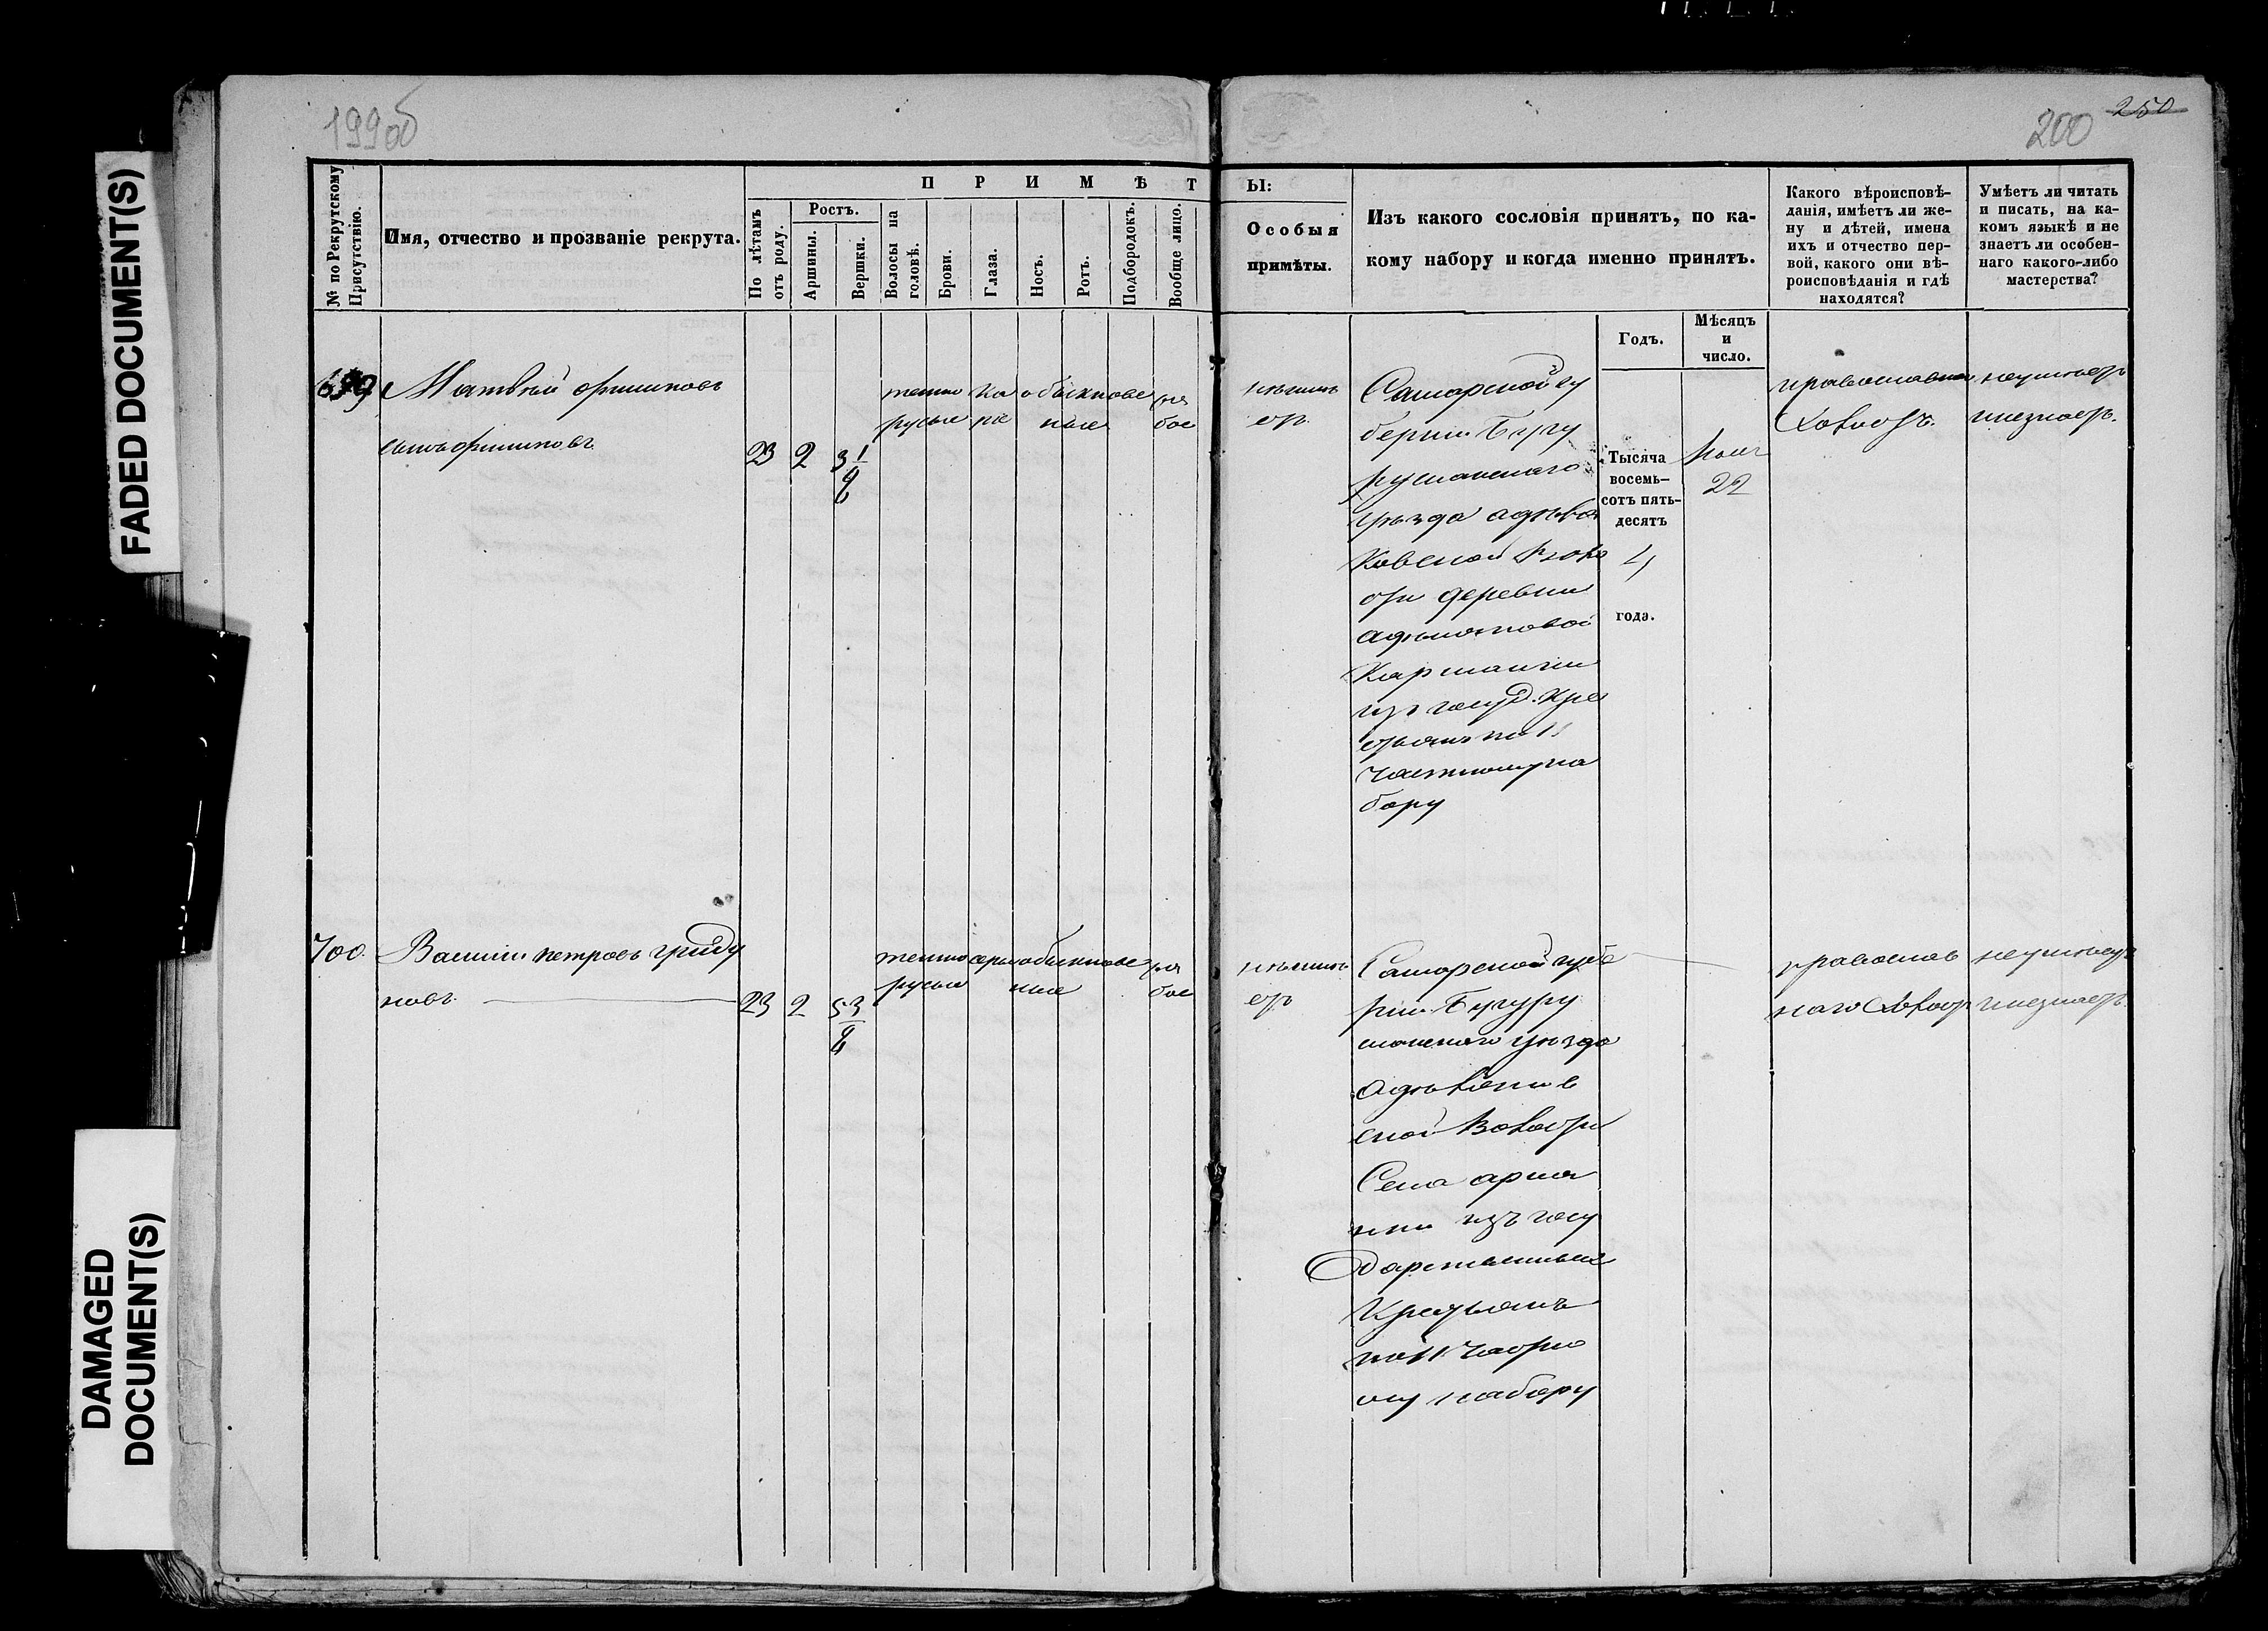 FADED DOCUMENT(S)
DAMAGED
DOCUMENT(S)
199об
200
250
№ по Рекрутскому
Присутствію.
Имя, отчество и прозваніе рекрута.
П Р И М Ѣ Т
Ы:
По лѣтамъ
отъ роду.
Ростъ.
Аршины.
Вершки.
Волосы на
головѣ.
Брови.
Глаза.
Носъ.
Ротъ.
Подбородокъ.
Вообще лицо.
Особыя
примѣты.
Изъ какого сословія принятъ, по ка-
кому набору и когда именно принятъ.
Какого вѣроисповѣ-
данія, имѣетъ ли же-
ну и дѣтей, имена
ихъ и отчество пер-
вой, какого они вѣ-
роисповѣданія и гдѣ
находятся?
Умѣетъ ли читать
и писать, на ка-
комъ языкѣ и не
знаетъ ли особен-
наго какого-либо
мастерства?
Годъ.
Мѣсяцъ
и
число.
699
Матвѣй
23 2 3 1/8
темно
русые
ка
ріе
обыкнове
ные
ря
бое
нѣтъ
Самарской гу
берніи Бугу
русланскаго
уѣзда
деревни
изъ госуд. кре
стьянъ по 11
частному на
бору
Тысяча
восемь-
сотъ пять-
десятъ
4
года.
22
православнаго
Холостъ.
неумѣетъ
инезнаетъ.
700.
Петровъ Гриду
новъ
23 2 5 3/8
темно
русые
серые
обыкнове
ные
ря
бое
Самарской губе
рніи Бугуру
сланскаго уѣзда
ской Волости
Села
изъ госу
дарственныхъ
Крестьянъ
по 11 Частно
му набору
православ
наго Холостъ
неумѣетъ
инезнаетъ.